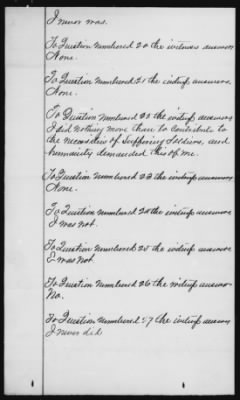 I never was.
To Question numbered 20 the witness answers
None.
To Question numbered 21 the witness answers
None.
To Question numbered 22 the witness answers
I did nothing more than to contribute to
the necessities of Suffering Soldiers, and
humanity demanded this of me.
To Question numbered 23 the witness answers
None.
To Question numbered 24 the witness answers
I was not.
To Question numbered 25 the witness answers
I was not.
To Question numbered 26 the witness answers
No.
To Question numbered 27 the witness answers
I never did